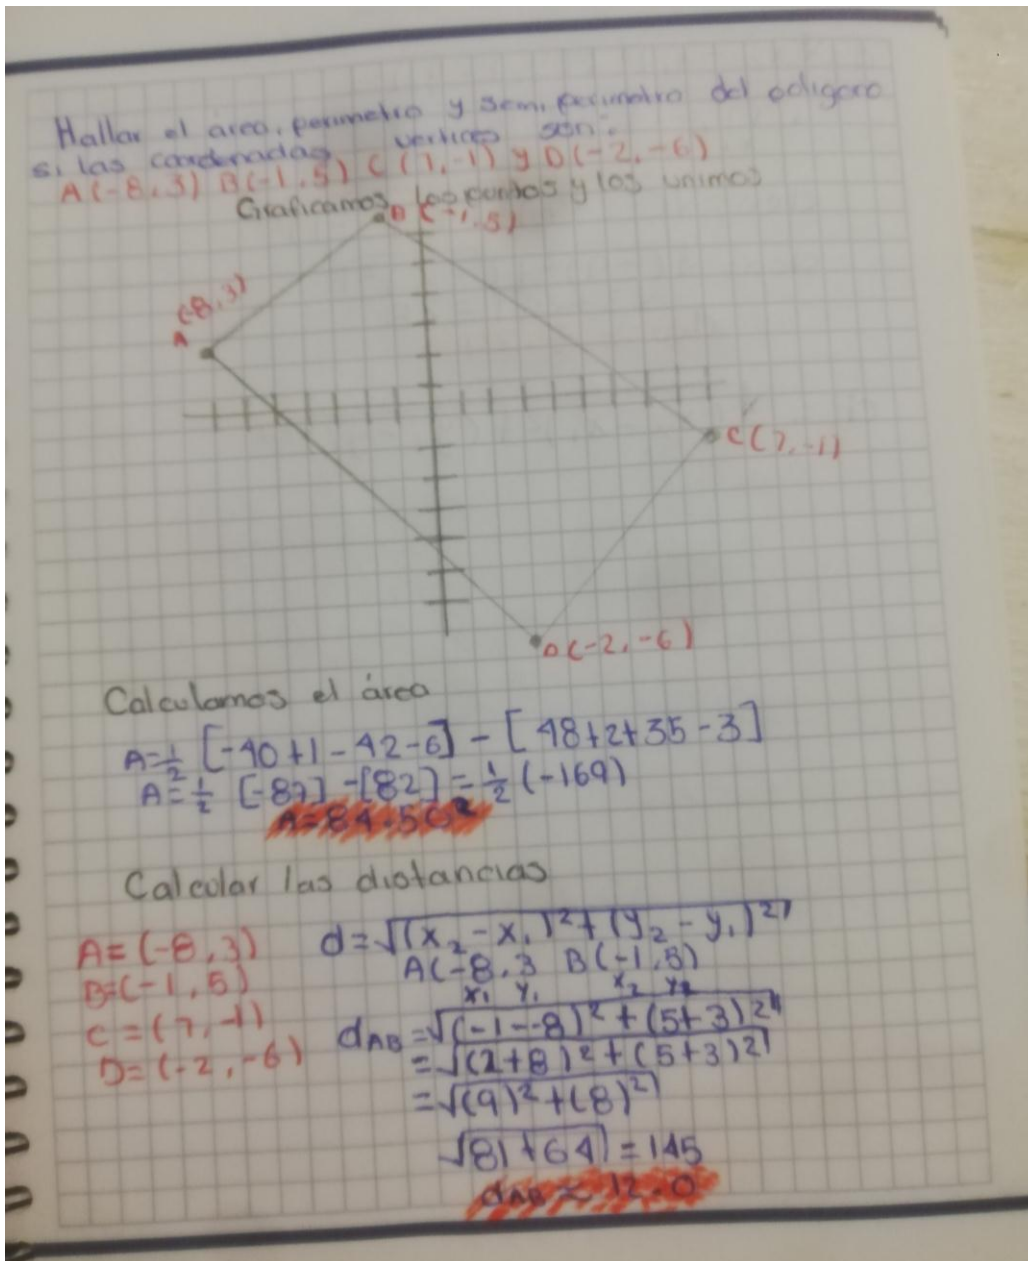 Hallar el area, perimetro y semiperimetro del
si las coordenadas vertices son:
A(-8,3) B(-1,5) C(7,-1) y D(-2,-6)
Graficamos los puntos y los unimos
B(-1,5)
(-8,3)
A
C(7,-1)
D(-2,-6)
Calculamos el área
A=1/2 [-40+1-42-6] - [48+2+35-3]
A=1/2 [-87]-[82]=1/2(-169)
A=84.5
Calcular las distancias
A=(-8,3)
B=(-1,5)
C=(7,-1)
D=(-2,-6)
d=√(x₂-x₁)²+(y₂-y₁)²
A(-8,3 B(-1,5)
x₁ y₁ x₂ y₂
dAB=√(-1--8)²+(5+3)²
=√(1+8)²+(5+3)²
=√(9)²+(8)²
√81+64=145
dAB≈12.0